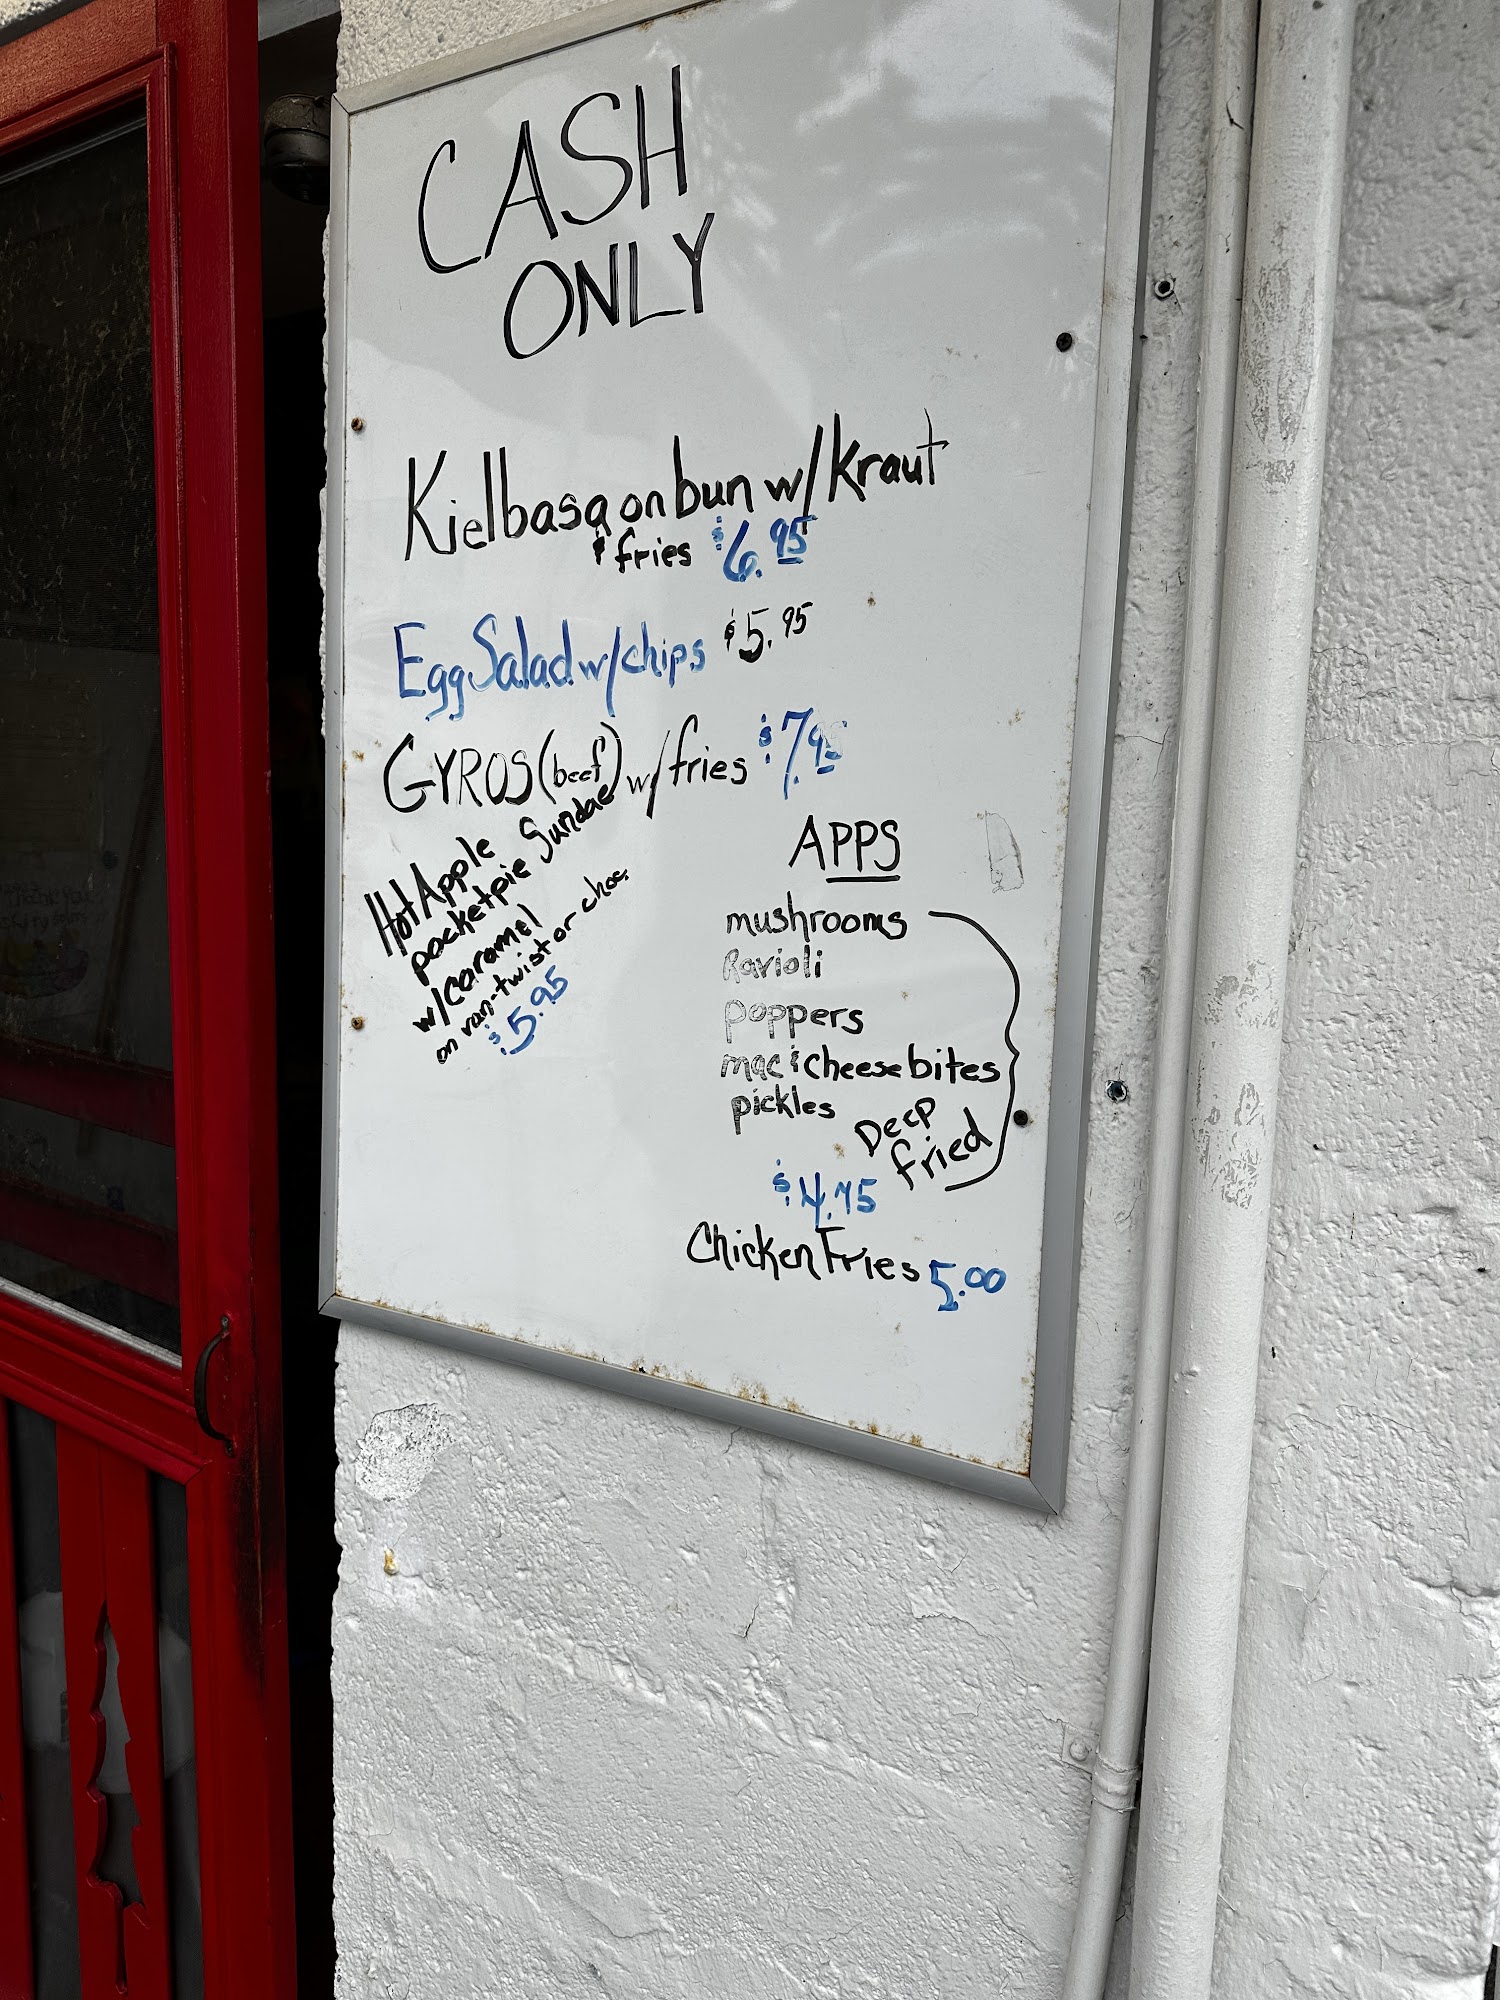 CASH
ONLY
Kielbasa on bun w/Kraut
& fries $6.95
Egg Salad w/chips $5.95
GYROS (beef) w/fries $7.95
Hot Apple
pocketpie Sundae
w/caramel
on van-twist or choc.
$5.95
APPS
mushrooms
Ravioli
poppers
mac & cheese bites
pickles
Deep
fried
$4.75
Chicken Fries 5.00